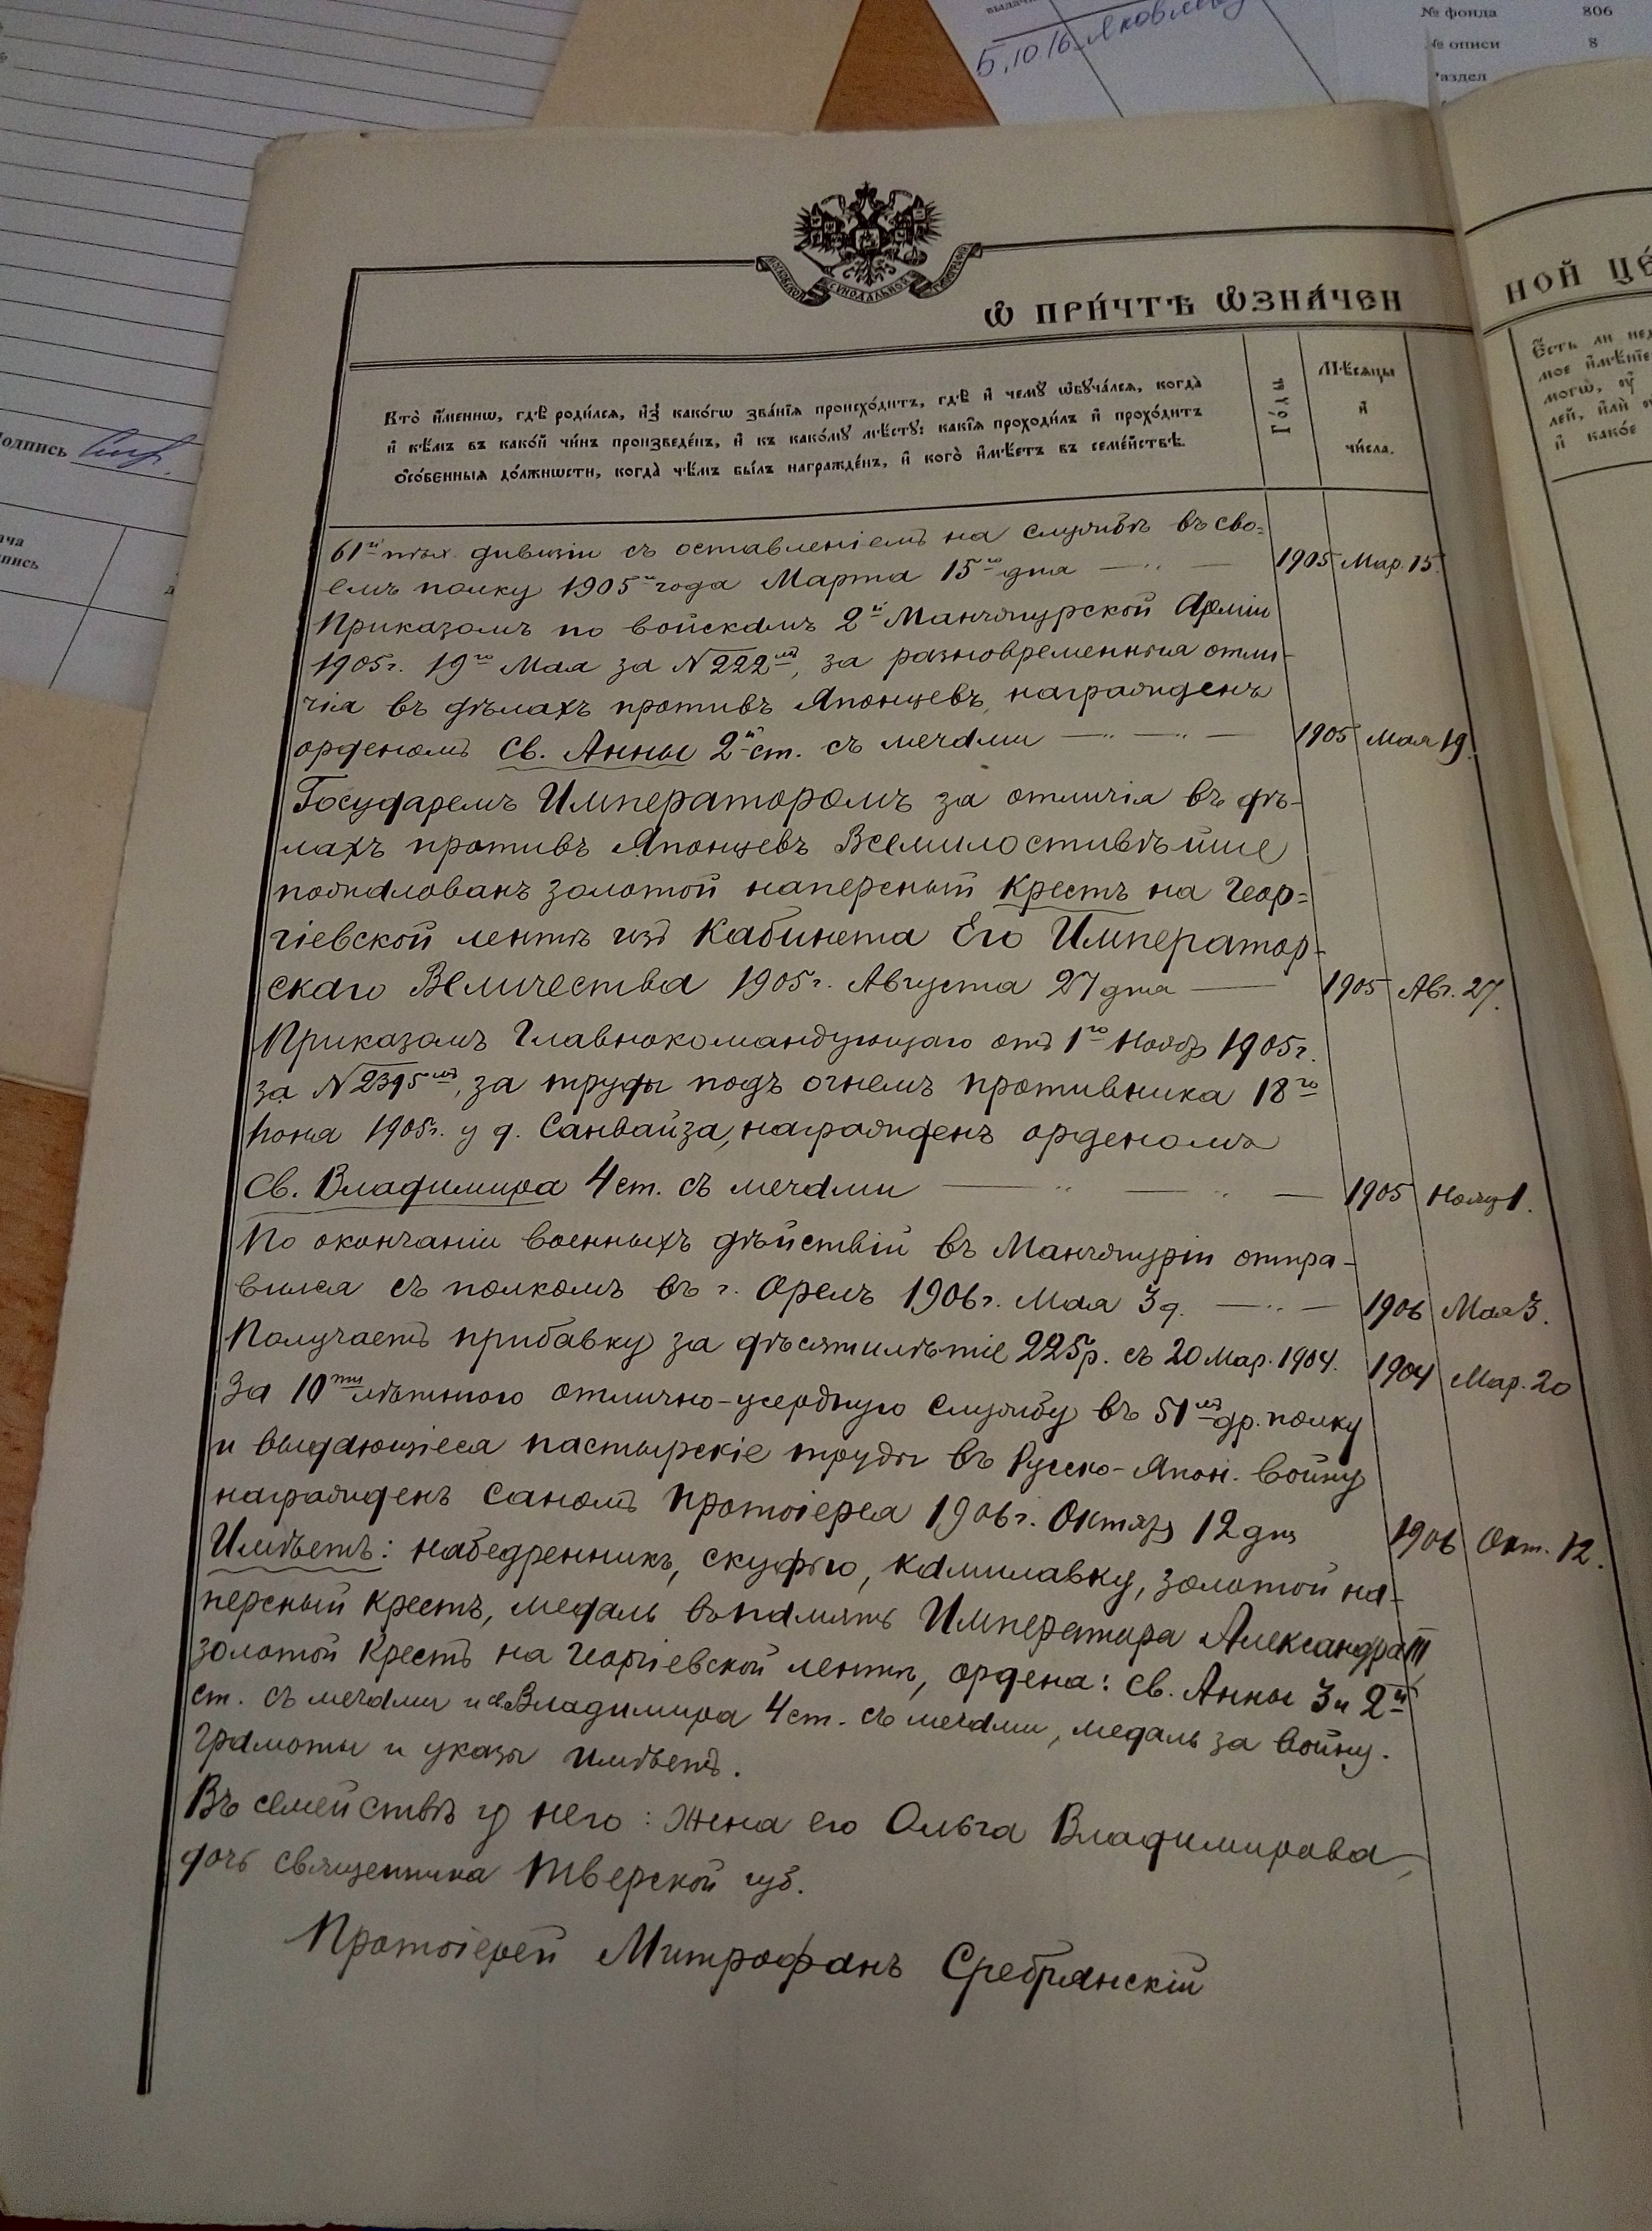 Б.10.16. Яковлев
№ фонда 806
№ описи 8
раздел
подпись
МОСКОВСКОЙ СѴНОДАЛЬНОЙ ТИПОГРАФІИ
Ѡ ПРИ́ЧТѢ ѠЗНА́ЧЕН
НОЙ ЦЕ
Кто̀ и҆́меннѡ, гдѣ̀ роди́лсѧ, и҆з̾ како́гѡ зва́нїѧ происхо́дитъ, гдѣ̀ и҆ чемꙋ̀ ѡ҆бꙋча́лсѧ, когда̀
и҆ кѣ́мъ въ како́й чи́нъ произведе́нъ, и҆ къ како́мꙋ мѣ́стꙋ: какі́ѧ проходи́лъ и҆ прохо́дитъ
ѻ҆со́бенныѧ до́лжнѡсти, когда̀ чѣ́мъ бы́лъ награжде́нъ, и҆ кого̀ и҆мѣ́етъ въ семе́йствѣ.
Го́ды
Мѣ́сѧцы
и҆
чи́сла.
Е҆́сть ли нед
мое и҆мѣ́нїе
лей, и҆лѝ
и҆ како́е
61й пѣх. дивизіи съ оставленіемъ на службѣ въ сво=
емъ полку 1905го года Марта 15го дня — 1905 Мар. 15.
Приказомъ по войскамъ 2й Манчжурской Арміи
1905г. 19го Мая за №222мъ, за разновременныя отли-
чія въ дѣлахъ противъ Японцевъ, награжденъ
орденомъ Св. Анны 2й ст. съ мечами — 1905 Мая 19.
Государемъ Императоромъ за отличія въ дѣ-
лахъ противъ Японцевъ Всемилостивѣйше
пожалованъ золотой наперсный Крестъ на Геор=
гіевской лентѣ изъ Кабинета Его Император-
скаго Величества 1905г. Августа 27 дня — 1905 Авг. 27.
Приказомъ Главнокомандующаго отъ 1го Нояб. 1905г.
за №2395мъ, за труды подъ огнемъ противника 18го
Іюня 1905г. у д. Санвайза, награжденъ орденомъ
Св. Владимира 4 ст. съ мечами — 1905 Нояб. 1.
По окончаніи военныхъ дѣйствій въ Манчжуріи отпра-
вился съ полкомъ въ г. Орелъ 1906г. Мая 3 д. — 1906 Мая 3.
Получаетъ прибавку за десятилѣтіе 225р. съ 20 Мар. 1904. 1904 Мар. 20
За 10ти лѣтнюю отлично-усердную службу въ 51мъ др. полку
и выдающіеся пастырскіе труды въ Русско-Япон. войну
награжденъ саномъ Протоіерея 1906г. Октяб. 12 дня 1906 Окт. 12.
Имѣетъ: набедренникъ, скуфью, камилавку, золотой на-
персный Крестъ, медаль въ память Императора Александра III,
золотой Крестъ на Георгіевской лентѣ, ордена: Св. Анны 3 и 2й
ст. съ мечами и св. Владимира 4 ст. съ мечами, медаль за войну.
Грамоты и указы имѣетъ.
Въ семействѣ у него: Жена его Ольга Владимирова,
дочь священника Тверской губ.
Протоіерей Митрофанъ Сребрянскій